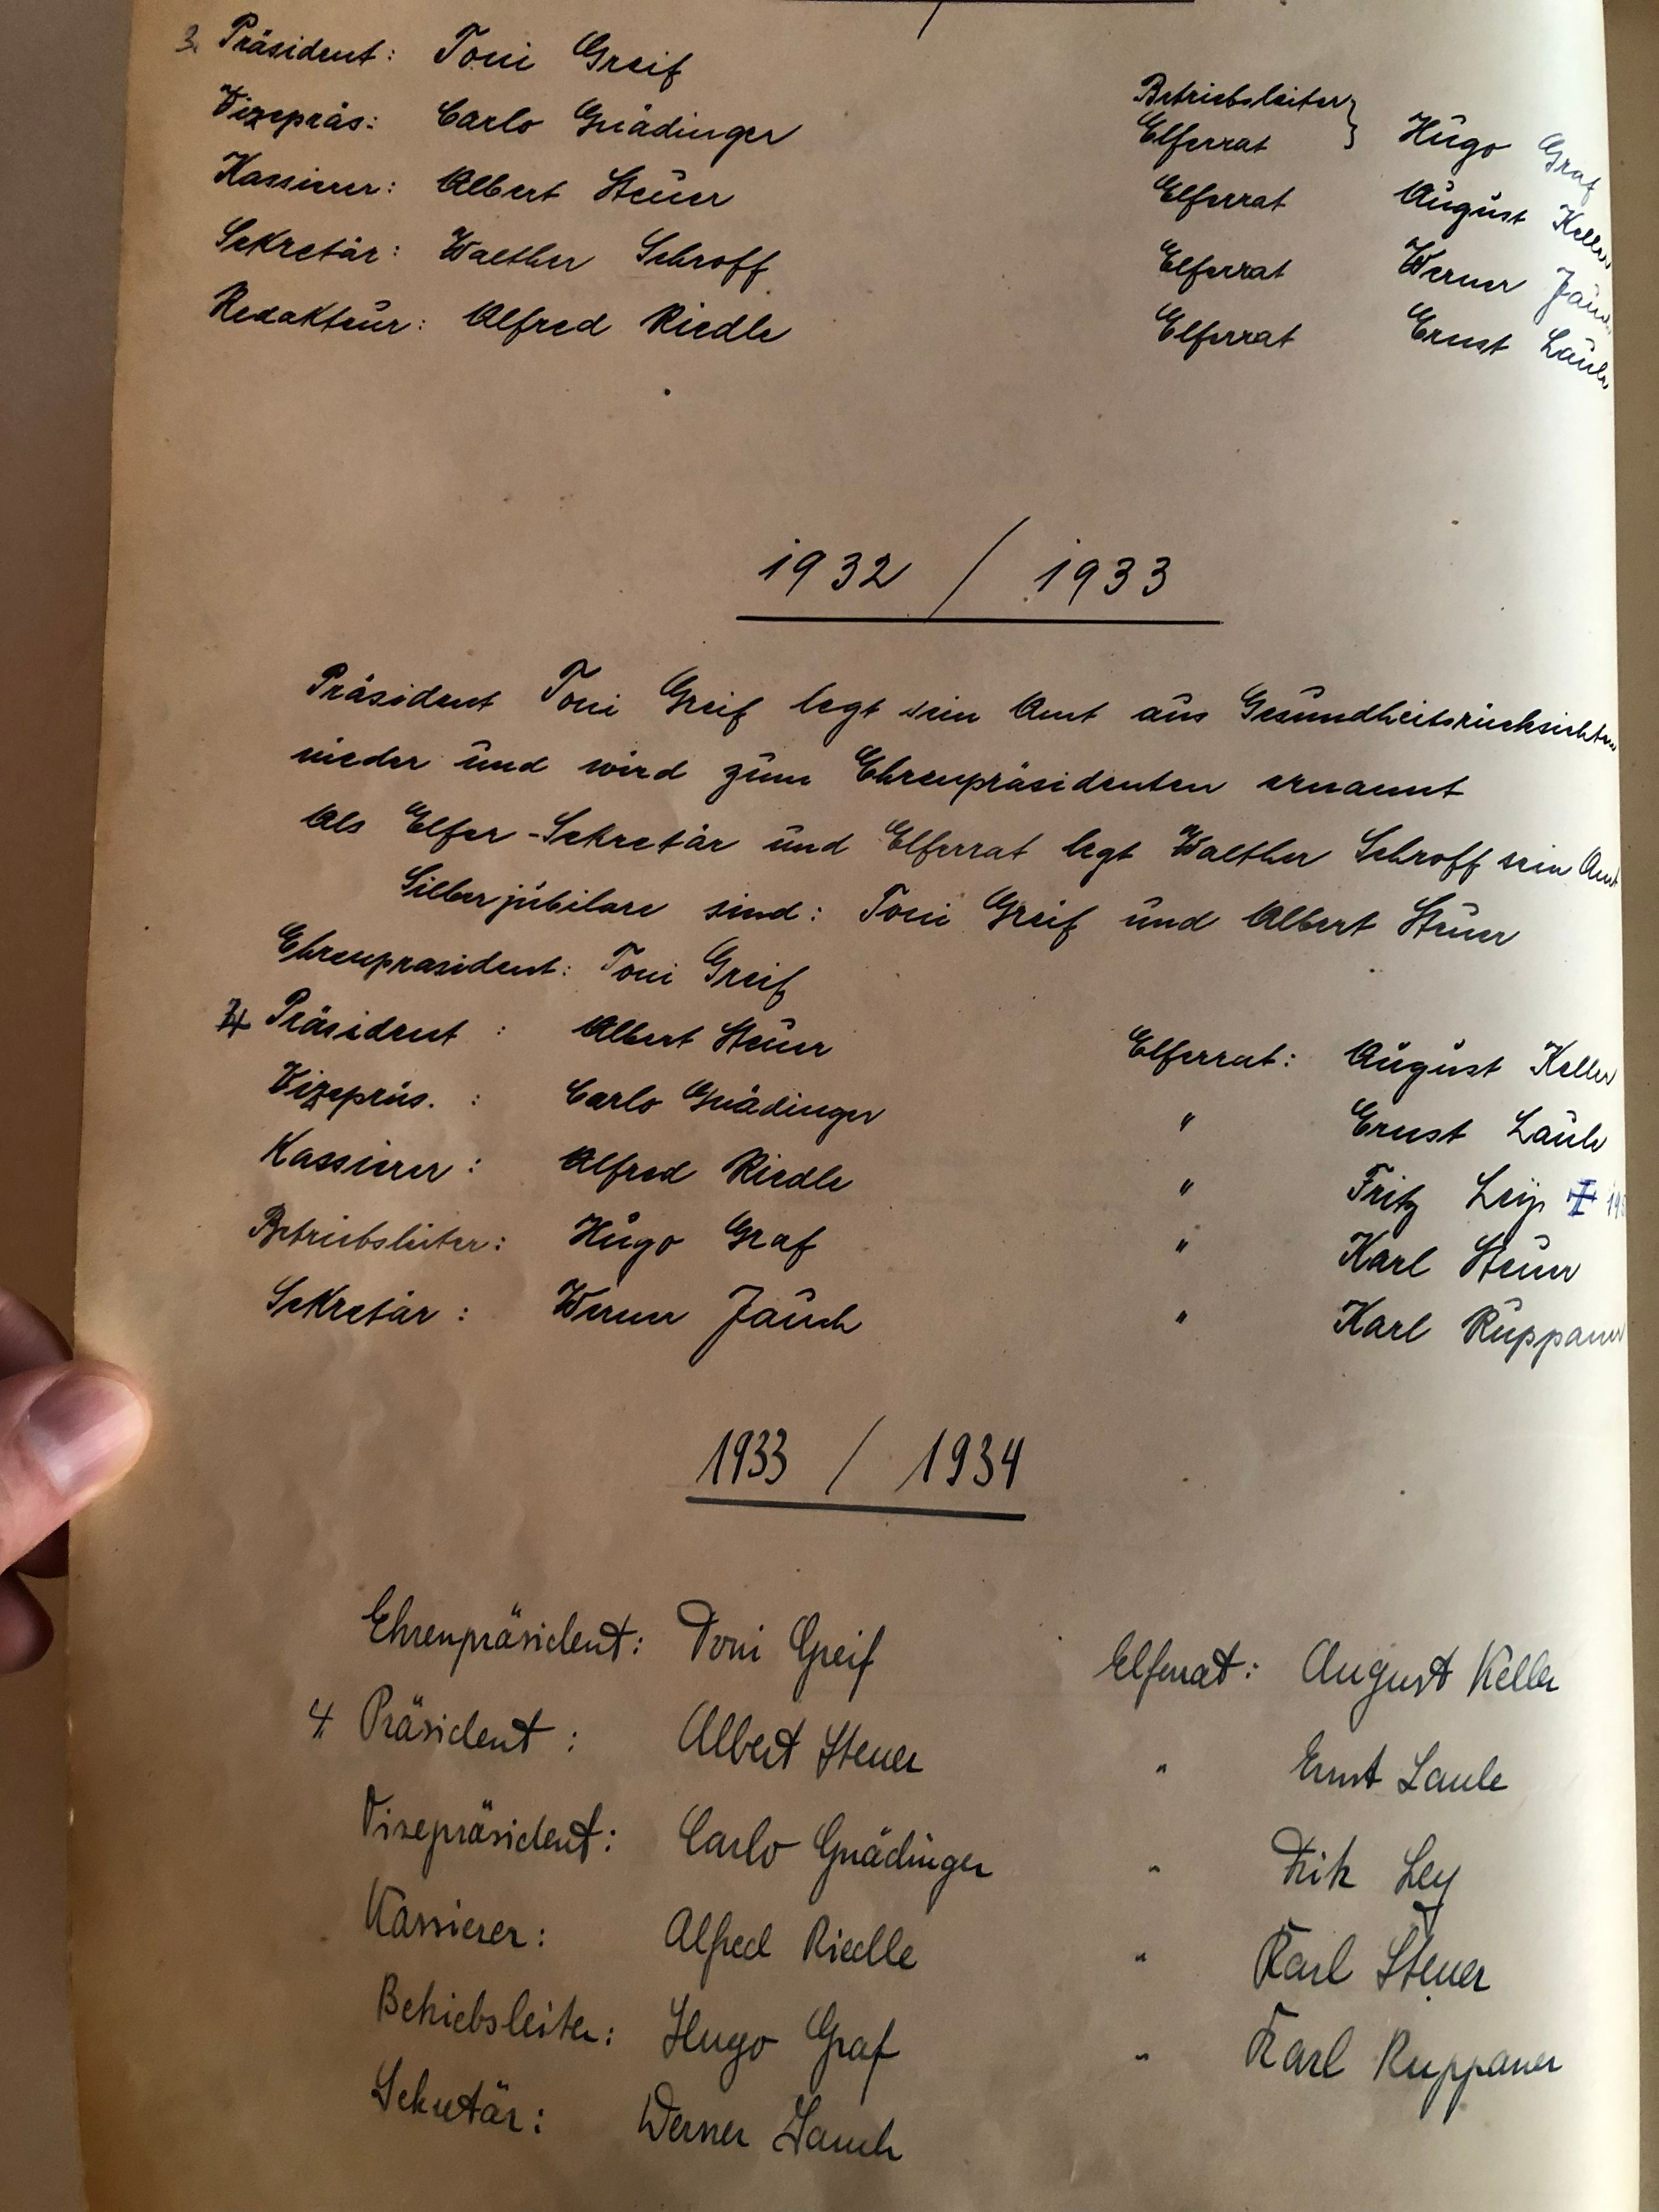 3. Präsident: Toni Greif
Vizepräs: Carlo Gnädinger
Kassierer: Albert Steuer
Sekretär: Walther Schroff
Redakteur: Alfred Riedle
Betriebsleiter }
Elferrat } Hugo Graf
Elferrat August Keller
Elferrat Werner Jauch
Elferrat Ernst Laule
1932 / 1933
Präsident Toni Greif legt sein Amt aus Gesundheitsrücksichten
nieder und wird zum Ehrenpräsidenten ernannt
Als Elfer-Sekretär und Elferrat legt Walther Schroff sein Amt
Silberjubilare sind: Toni Greif und Albert Steuer
Ehrenprasident: Toni Greif
4 Präsident : Albert Steuer
Vizepräs. : Carlo Gnädinger
Kassierer : Alfred Riedle
Betriebsleiter: Hugo Graf
Sekretär : Werner Jauch
Elferrat: August Keller
" Ernst Laule
" Fritz
" Karl Steuer
" Karl Ruppaner
1933 / 1934
Ehrenpräsident: Toni Greif
4 Präsident : Albert Steuer
Vizepräsident: Carlo Gnädinger
Kassierer: Alfred Riedle
Betriebsleiter: Hugo Graf
Sekretär: Werner Jauch
Elferrat: August Keller
" Ernst Laule
" Fritz Ley
" Karl Steuer
" Karl Ruppaner